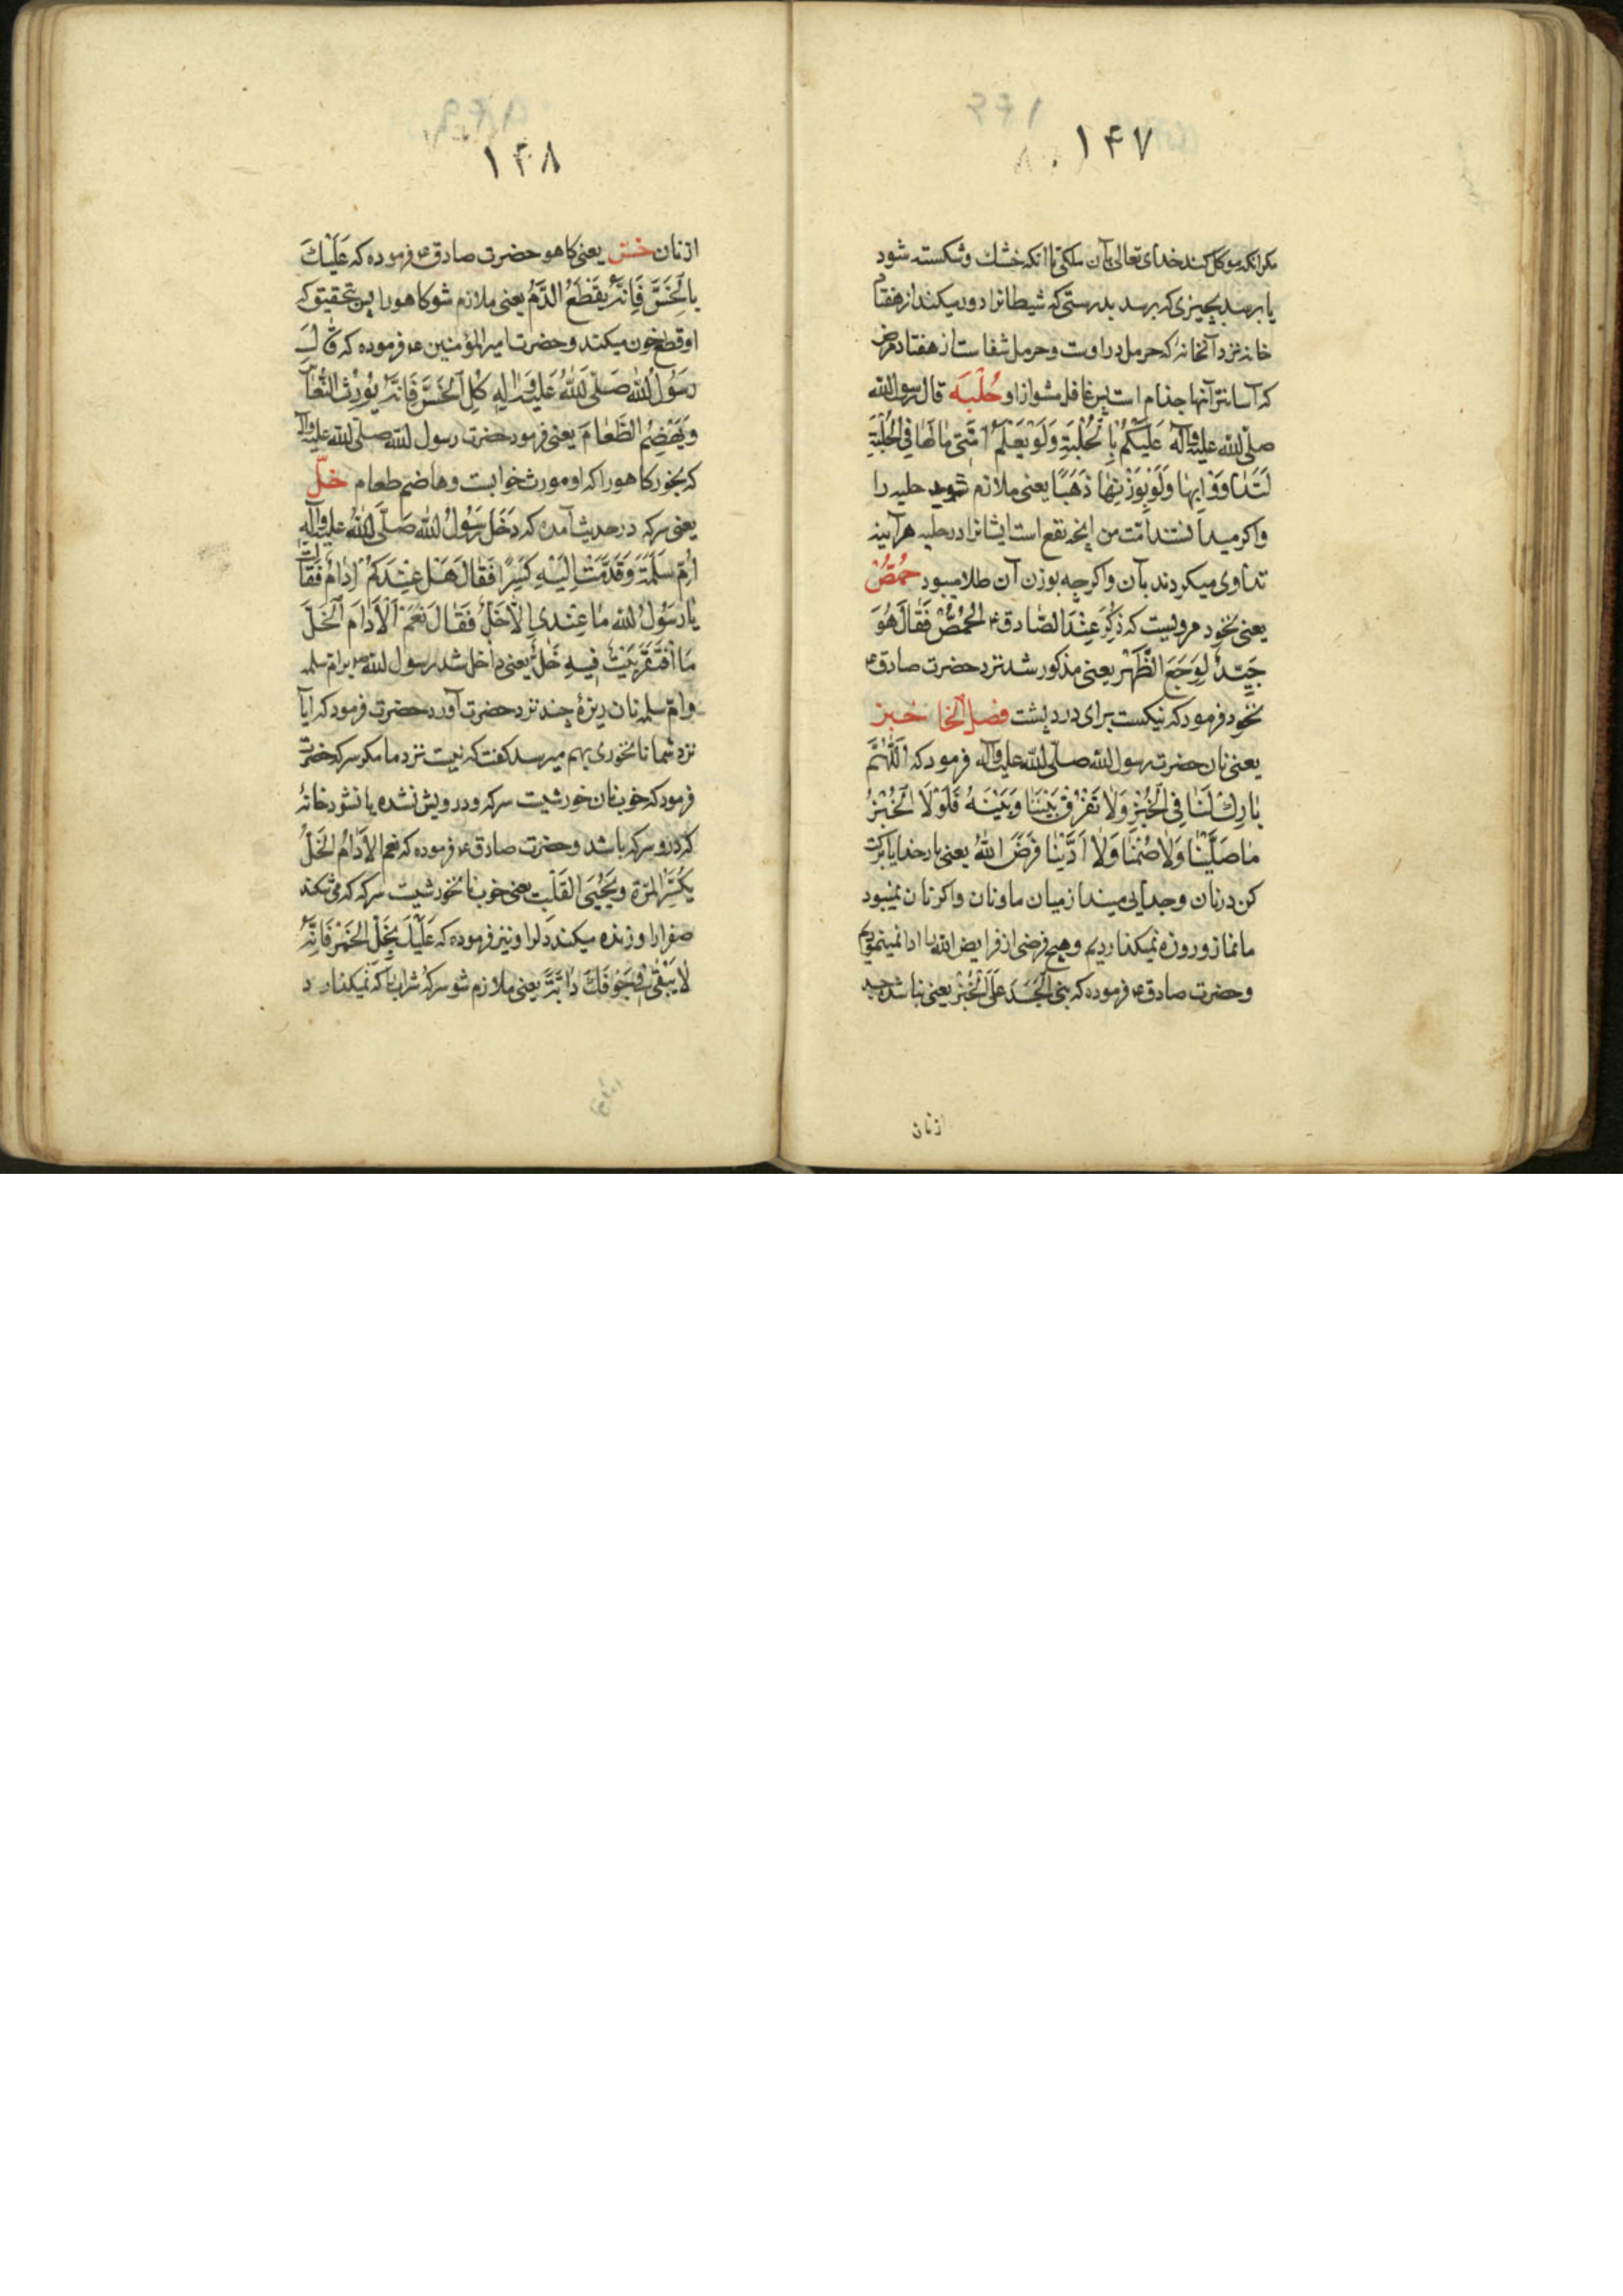 ۱۴۷
مکر انکه موکل کند خدای تعالی بآن ملکی تا انکه خشك و شکسته شود
یا برسد بچیزی که برسد بدرستی که شیطانرا دور میکند از هفتاد
خانه نزد آنخانه که حرمل در اوست و حرمل شفاست از هفتاد مرض
که آسانتر آنها جذام است پس غافل مشو از او حُلْبَه قال رسول الله
صلّی الله علیه وآله عَلَیکُمْ بِالْحُلْبَةِ وَلَوْ یَعْلَمُ اُمَّتی مٰا لَهٰا فِی الْحُلْبَةِ
لَتَدٰاوَوْا بِهٰا وَلَوْ بِوَزْنِهٰا ذَهَبًا یعنی ملازم شوید حلبه را
واکر میدانستند امّت من انچه نفع است ایشانرا در حلبه هرآینه
تداوی میکردند بآن واکرچه بوزن آن طلا میبود حُمُّصْ
یعنی نخود مرویست که ذُکِرَ عِنْدَ الصّٰادق ع الْحُمُّصُ فَقٰالَ هُوَ
جَیِّدٌ لِوَجَعِ الظَّهْرِ یعنی مذکور شد نزد حضرت صادق ع
نخود فرمود که نیکست برای درد پشت فصل الخا خبز
یعنی نان حضرت رسول الله صلّی الله علیه وآله فرمود که اَللّٰهُمَّ
بٰارِكْ لَنٰا فِی الْخُبْزِ وَلٰا تَفْرُقْ بَیْنَنٰا وَبَیْنَهُ فَلَوْلَا الْخُبْزُ
مٰا صَلَّیْنٰا وَلٰا صُمْنٰا وَلٰا اَدَّیْنٰا فَرَضَ اللّٰهُ یعنی بارخدایا برکت
کن در نان و جدایی میندار میان ما ونان واکر نان نمیبود
ما نماز و روزه نمیکذاردیم و هیچ فرضی از فرایض الله را ادا نمینمودیم
و حضرت صادق ع فرموده که بنی الْجَسَدَ عَلَی الْخُبْزِ یعنی بنا شد جسد
از نان
۱۴۸
از نان خس یعنی کاهو حضرت صادق ع فرموده که عَلَیْكَ
بِالْخَسِّ فَاِنَّهُ یَقْطَعُ الدَّمَ یعنی ملازم شو کاهو را پس بتحقیق که
او قطع خون میکند و حضرت امیرالمؤمنین ع فرموده که قٰالَ
رَسُولُ اللّٰهِ صَلَّی اللّٰهُ عَلَیْهِ وَاٰلِهِ کُلِ الْخَسَّ فَاِنَّهُ یُورِثُ النُّعٰاسَ
وَیَهْضِمُ الطَّعٰامَ یعنی فرمود حضرت رسول الله صلّی الله علیه وآله
که بخور کاهو را که او مورث خوابست وهاضم طعام خلّ
یعنی سرکه در حدیث آمده که دَخَلَ رَسُولُ اللّٰهِ صَلَّی اللّٰهُ علیه وآلهِ
اُمِّ سَلَمَةَ وَقَدَّمَتْ اِلَیْهِ کِسَرًا فَقٰالَ هَلْ عِنْدَکُمْ اِدٰامٌ فَقٰالَتْ
یٰا رَسُولَ اللّٰهِ مٰا عِنْدی اِلّٰا خَلٌّ فَقٰالَ نِعْمَ الْاِدٰامُ الْخَلُّ
مٰا افْتَقَرَ بَیْتٌ فیهِ خَلٌّ یعنی داخل شد رسول الله ص برام سلمه
وامّ سلمه نان ریزهٔ چند نزد حضرت آورد حضرت فرمود که ایا
نزد شما نانخوری بهم میرسد کفت که نیست نزد ما مکر سرکه حضرت
فرمود که خوب نان خورشیست سرکه و درویش نشده یا نشود خانهٔ
که در او سرکه باشد و حضرت صادق ع فرموده که نعم الاِدٰامُ الخَلُّ
یَکْسِرُ الْمِرَّةَ وَیُحْیِی الْقَلْبَ یعنی خوب نانخورشیست سرکه که میشکند
صفرا را و زنده میکند دلرا و نیز فرموده که عَلَیْكَ بِخَلِّ الْخَمْرِ فَاِنَّهُ
لٰا یَبْقٰی فِی جَوْفِكَ دٰابَّةً یعنی ملازم شو سرکهٔ شراب را که نمیکذارد